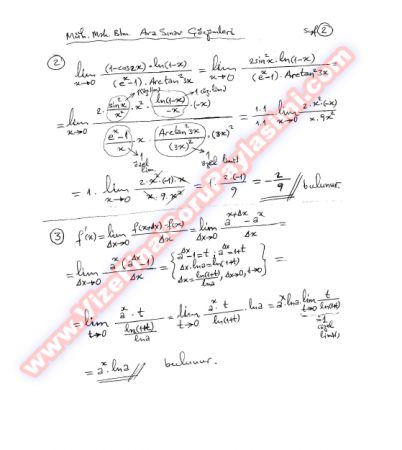 Müh. Mek. Blm. Ara Sınav Çözümleri Sayf (2)
(2) lim x→0 (1-cos2x)·ln(1-x) / (e^x-1)·Arctan²3x = lim x→0 2sin²x·ln(1-x) / (e^x-1)·Arctan²3x =
= lim x→0 2·(sin²x/x²)·x²·(ln(1-x)/-x)·(-x) / ((e^x-1)/x)·x·(Arctan²3x/(3x)²)·(3x)² = 1.1/1.1 lim x→0 2·x²·(-x) / x·9x² =
özel limit özel limit
= 1· lim x→0 2·x²·(-1)·x / x·9·x² = 1· 2·(-1)/9 = -2/9 // bulunur.
(3) f'(x) = lim Δx→0 f(x+Δx)-f(x) / Δx = lim Δx→0 a^(x+Δx) - a^x / Δx =
= lim Δx→0 a^x (a^Δx - 1) / Δx = { a^Δx - 1 = t, a^Δx = 1+t
Δx·lna = ln(1+t)
Δx = ln(1+t)/lna, Δx→0, t→0 } =
= lim t→0 a^x·t / (ln(1+t)/lna) = lim t→0 a^x·t / ln(1+t) · lna = a^x·lna· lim t→0 t/ln(1+t)
=1 özel limit
= a^x·lna // bulunur.
www.VizeFinalSoruPaylasimi.com